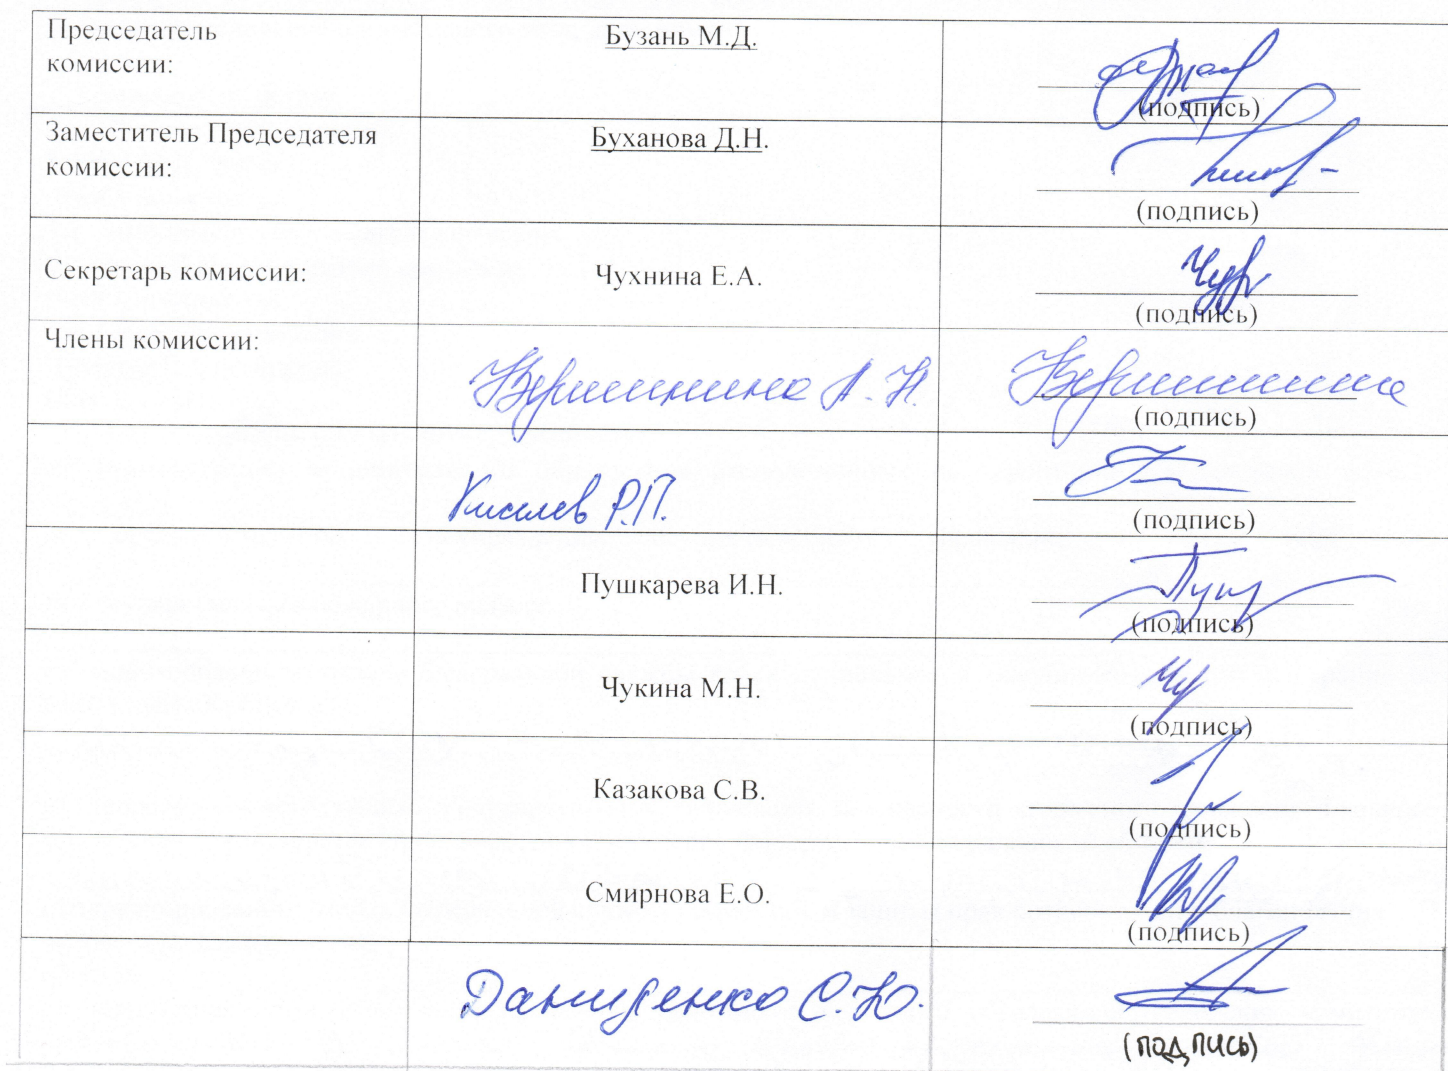 Председатель
комиссии:
Бузань М.Д.
(подпись)
Заместитель Председателя
комиссии:
Буханова Д.Н.
(подпись)
Секретарь комиссии:
Чухнина Е.А.
(подпись)
Члены комиссии:
Вершинина А.Н.
Вершинина
(подпись)
Киселев Р.П.
(подпись)
Пушкарева И.Н.
(подпись)
Чукина М.Н.
(подпись)
Казакова С.В.
(подпись)
Смирнова Е.О.
(подпись)
Даниленко С.Ю.
(подпись)